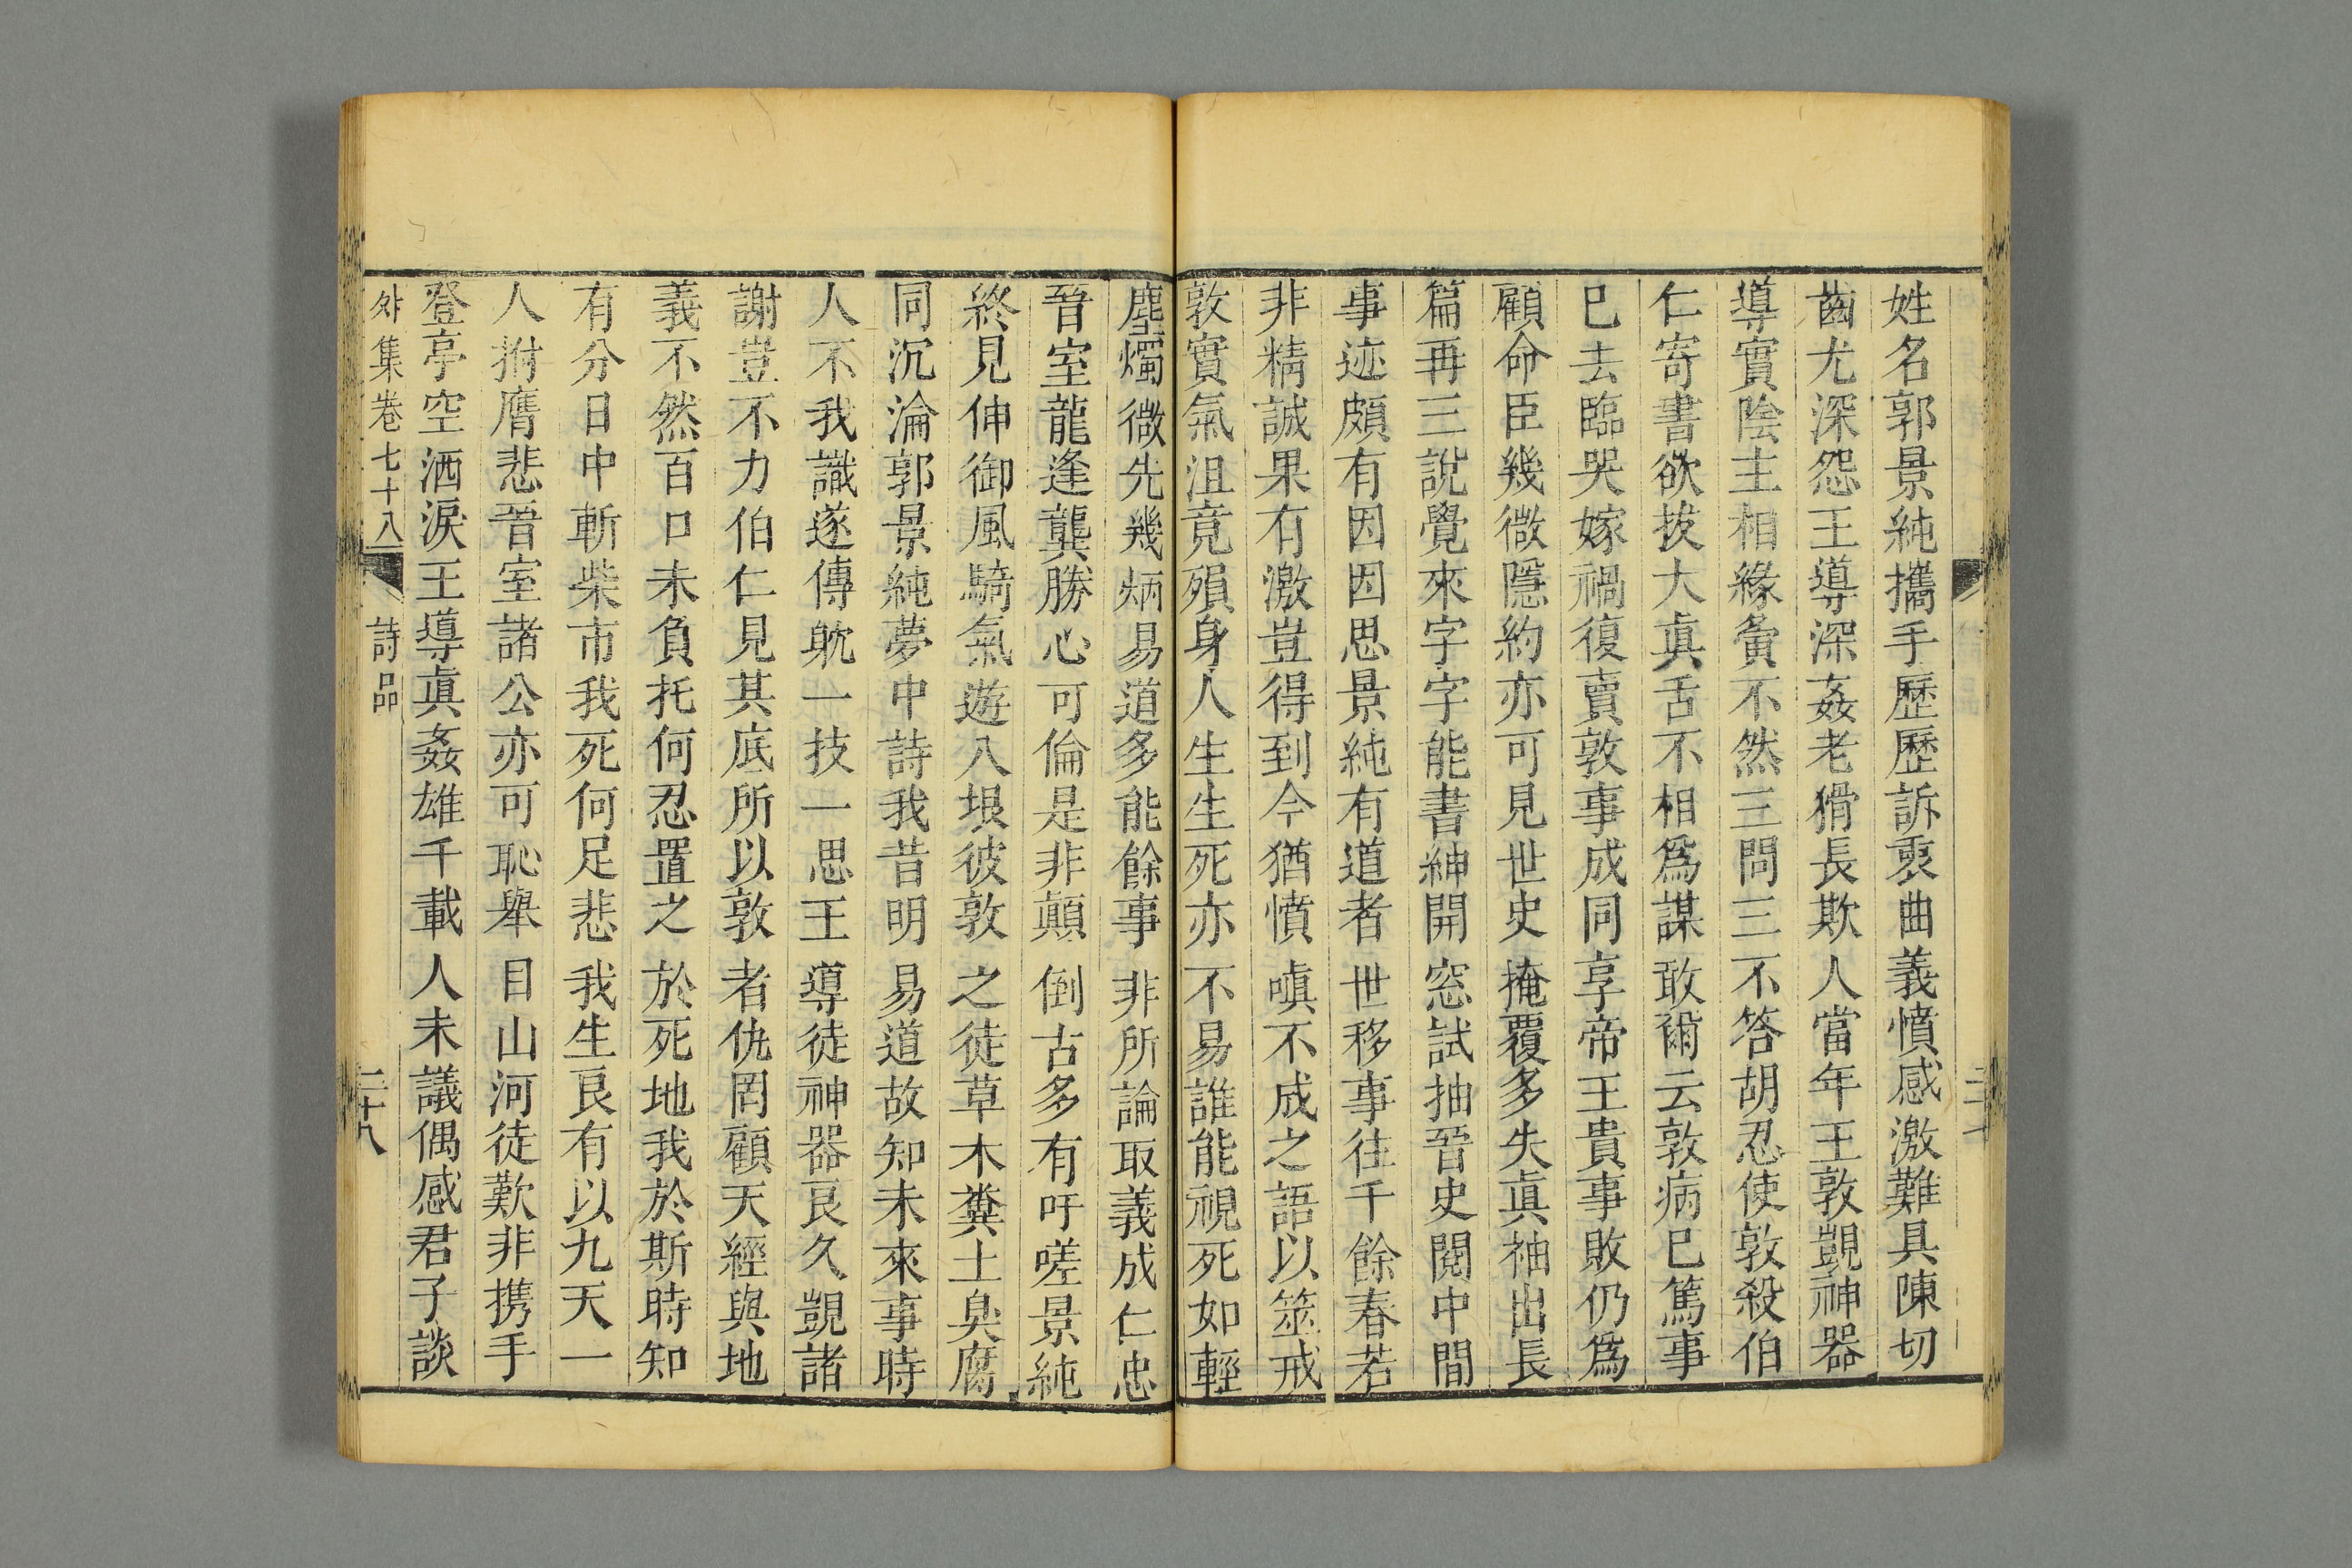 姓名郭景純攜手歷歷訴衷曲義憤感激難具陳切
齒尤深怨王導深姦老猾長欺人當年王敦覬神器
導實陰主相緣夤不然三問三不答胡忍使敦殺伯
仁寄書欲拔大眞舌不相爲謀敢爾云敦病已篤事
已去臨哭嫁禍復賣敦事成同享帝王貴事敗仍爲
顧命臣幾微隱約亦可見世史掩覆多失眞袖出長
篇再三說覺來字字能書紳開窓試抽晉史閱中間
事迹頗有因因思景純有道者世移事往千餘春若
非精誠果有激豈得到今猶憤嗔不成之語以筮戒
敦實氣沮竟殞身人生生死亦不易誰能視死如輕
塵燭微先幾炳易道多能餘事非所論取義成仁忠
晉室龍逢龔勝心可倫是非顛倒古多有吁嗟景純
終見伸御風騎氣遊八垠彼敦之徒草木糞土臭腐
同沉淪郭景純夢中詩我昔明易道故知未來事時
人不我識遂傳躭一技一思王導徒神器良久覬諸
謝豈不力伯仁見其底所以敦者仇罔顧天經與地
義不然百口未負托何忍置之於死地我於斯時知
有分日中斬柴市我死何足悲我生良有以九天一
人撫膺悲晉室諸公亦可恥舉目山河徒歎非携手
登亭空洒淚王導眞姦雄千載人未議偶感君子談
外集卷七十八 詩品 二十八